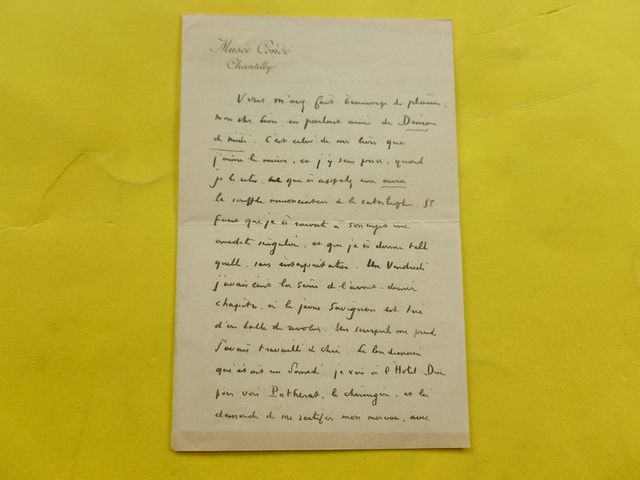 Musée Condé
Chantilly
Vous m'avez fait beaucoup de plaisir,
mon cher Léon, en parlant ainsi du Démon
de midi. C'est celui de mes livres que
j'aime le mieux, et j'y sens passer, quand
je le relis, ce que vous appelez une aura
le souffle annonciateur de la catastrophe. Il
faut que je vous raconte à son sujet une
anecdote singulière, et que je vous donne telle
quelle, sans interprétation. Un Vendredi
j'avais écrit la scène de l'avant-dernier
chapitre, où le jeune Savignan est tué
d'une balle de revolver. Un scrupule me prend
J'avais travaillé de chic. Le lendemain
qui était un Samedi, je vais à l'Hôtel-Dieu
pour voir Potherat, le chirurgien, et lui
demander de me rectifier mon morceau, avec